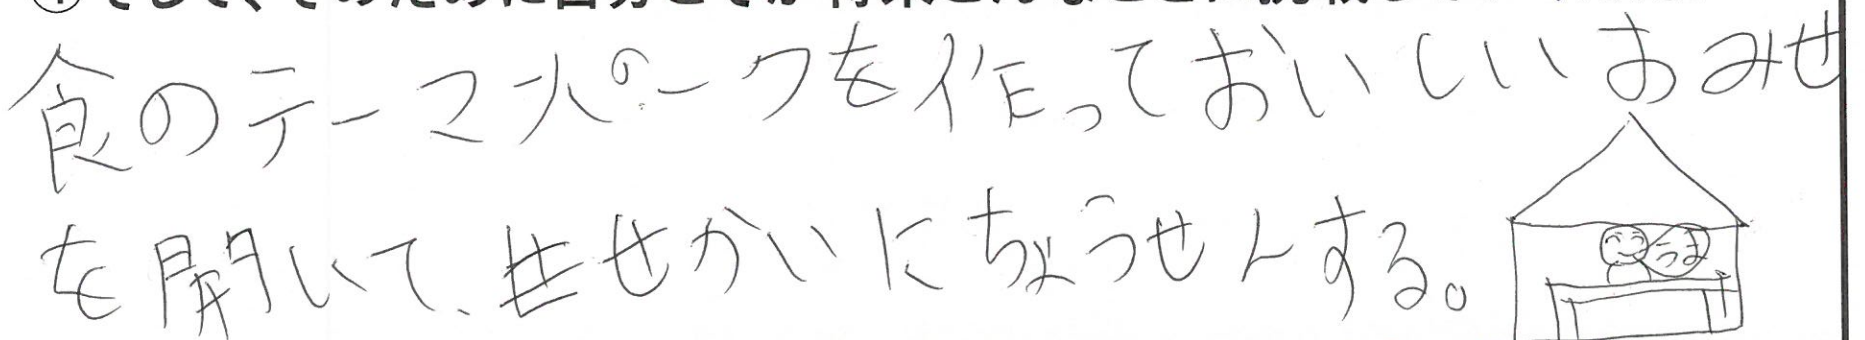 食のテーマパークを作っておいしいおみせ
を開いて、せかいにちょうせんする。
うま